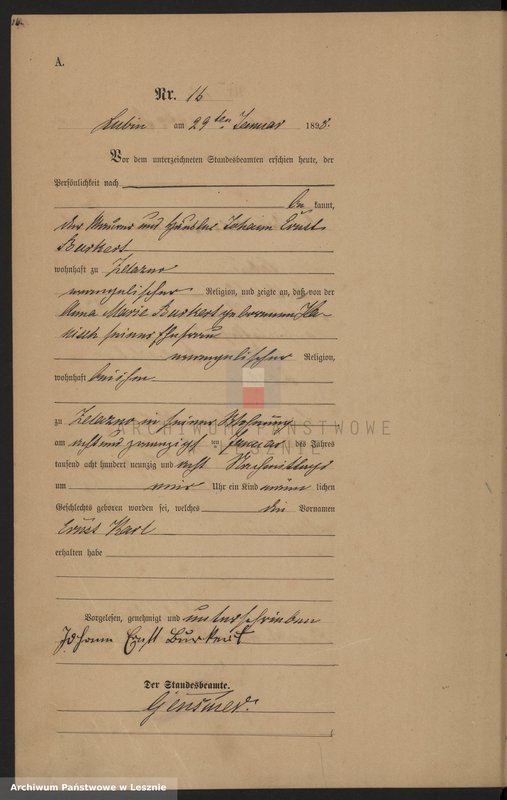 A.
Nr. 16
Lubin am 29ten Januar 1898.
Vor dem unterzeichneten Standesbeamten erschien heute, der
Persönlichkeit nach
be kannt,
der Maurer und Häusler Johann Ernst
Burkert
wohnhaft zu Zelazno
evangelischer Religion, und zeigte an, daß von der
Anna Marie Burkert geborenen
seiner Ehefrau
evangelischer Religion,
wohnhaft bei ihm
zu Zelazno in seiner Wohnung
am acht und zwanzigsten Januar des Jahres
tausend acht hundert neunzig und acht Nachmittags
um Uhr ein Kind männ lichen
Geschlechts geboren worden sei, welches die Vornamen
Ernst Karl
erhalten habe
Vorgelesen, genehmigt und unterschrieben
Johann Ernst Burkert
Der Standesbeamte.
ARCHIWUM PAŃSTWOWE
W LESZNIE
Archiwum Państwowe w Lesznie